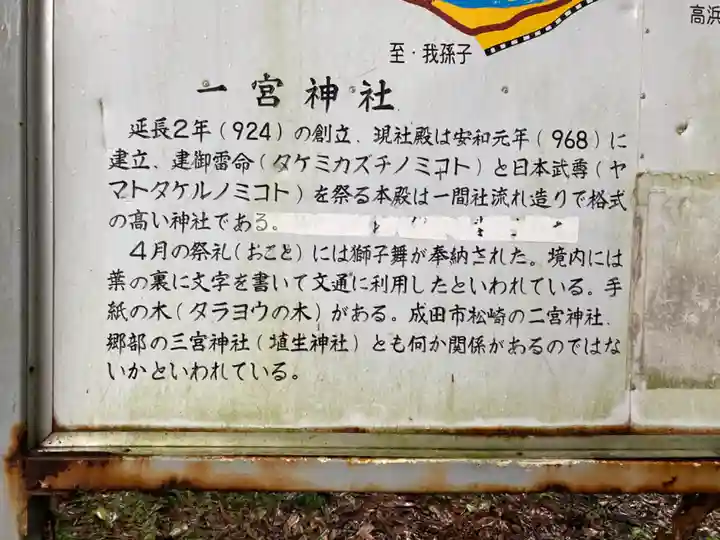 至・我孫子
高浜
一宮神社
延長2年(924)の創立、現社殿は安和元年(968)に
建立、建御雷命(タケミカズチノミコト)と日本武尊(ヤ
マトタケルノミコト)を祭る本殿は一間社流れ造りで格式
の高い神社である。
4月の祭礼(おこと)には獅子舞が奉納された。境内には
葉の裏に文字を書いて文通に利用したといわれている。手
紙の木(タラヨウの木)がある。成田市松崎の二宮神社、
郷部の三宮神社(埴生神社)とも何か関係があるのではな
いかといわれている。